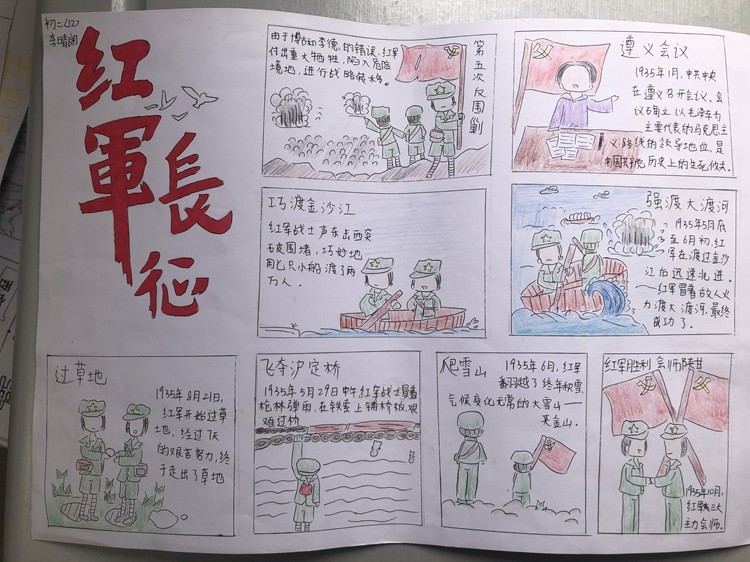 初二(12)
李晴朗
红軍長征
第五次反围剿
由于博古和李德的错误,红军
付出重大牺牲,陷入危险
境地,进行战略转移。
遵义会议
1935年1月,中共中央
在遵义召开会议。会
议确立以毛泽东为
主要代表的马克思主
义路线的领导地位,是
中国共产党历史上的生死攸关。
巧渡金沙江
红军战士声东击西突
破围堵,巧妙地
用七只小船渡了两
万人。
强渡大渡河
1935年5月底
至6月初,红
军在渡过金沙
江后迅速北进。
红军冒着敌人火
力渡大渡河,最终
成功了。
过草地
1935年8月21日,
红军开始过草
地,经过7天
的艰苦努力,终
于走出了草地
飞夺泸定桥
1935年5月29日中午红军战士冒着
枪林弹雨,在铁索上铺桥板,艰
难过桥
爬雪山
1935年6月,红军
翻越了终年积雪,
气候变化无常的大雪山——
夹金山。
红军胜利会师陕甘
1935年10月,
红军三大
主力会师。